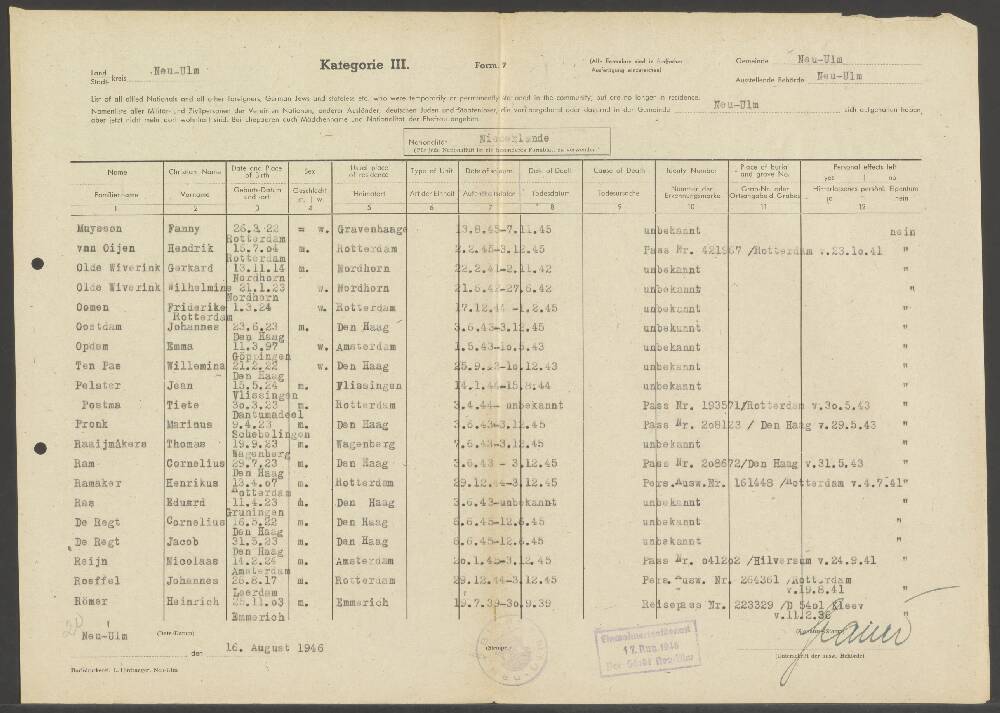 Land
Stadt- kreis Neu-Ulm
Kategorie III.
Form. 7
(Alle Formulare sind in fünffacher
Ausfertigung einzureichen)
Gemeinde Neu-Ulm
Ausstellende Behörde Neu-Ulm
List of all allied Nationals and all other foreigners, German Jews and stateless etc. who were temporarily or permanently stationed in the community, but are no longer in residence.
Namenliste aller Militär- und Zivilpersonen der Vereinten Nationen, anderer Ausländer, deutschen Juden und Staatenloser, die vorübergehend oder dauernd in der Gemeinde Neu-Ulm sich aufgehalten haben,
aber jetzt nicht mehr dort wohnhaft sind. Bei Ehepaaren auch Mädchenname und Nationalität der Ehefrau angeben.
Nationalität Niederlande
(Für jede Nationalität ist ein besonderes Formblatt zu verwenden)
Name Christian Name Date and Place of Birth Sex Usual place of residence Type of Unit Date of Death Cause of Death Identity Number Place of burial and grave No. Personal effects left yes no
Familienname Vorname Geburts-Datum und -ort Geschlecht m. w. Heimatort Art der Einheit Aufenthaltsdatum Todesdatum Todesursache Nummer der Erkennungsmarke Grab-Nr. oder Ortsangabe d. Grabes Hinterlassenes persönl. Eigentum ja nein
1 2 3 4 5 6 7 8 9 10 11 12
Muysson Fanny 26.3.22 w. Gravenhaage 13.8.45-7.11.45 unbekannt nein
Rotterdam
van Oijen Hendrik 15.7.04 m. Rotterdam 2.2.45-3.12.45 Pass Nr. 421967 /Rotterdam v.23.10.41 "
Rotterdam
Olde Wiverink Gerkard 13.11.14 m. Nordhorn 22.2.41-2.11.42 unbekannt "
Nordhorn
Olde Wiverink Wilhelmine 21.1.23 w. Nordhorn 21.6.42-27.6.42 unbekannt "
Nordhorn
Oomen Friderike 1.3.24 w. Rotterdam 17.12.44 -1.2.45 unbekannt "
Rotterdam
Oostdam Johannes 23.6.23 m. Den Haag 3.6.43-3.12.45 unbekannt "
Den Haag
Opdem Emma 11.3.97 w. Amsterdam 1.5.43-10.5.43 unbekannt "
Göppingen
Ten Pas Willemina 21.2.22 w. Den Haag 25.9.43-10.12.43 unbekannt "
Den Haag
Pelster Jean 15.5.24 m. Vlissingen 14.1.44-15.8.44 unbekannt "
Vlissingen
Postma Tiete 30.3.23 m. Rotterdam 3.4.44- unbekannt Pass Nr. 193571/Rotterdam v.30.5.43 "
Dantumadeel
Pronk Marinus 9.4.23 m. Den Haag 3.6.43-3.12.45 Pass Nr. 208123 / Den Haag v.29.5.43 "
Schebelingen
Raaijmåkers Thomas 19.9.23 m. Wagenberg 7.6.43-3.12.45 unbekannt "
Wagenberg
Ram Cornelius 29.7.23 m. Den Haag 3.6.43 - 3.12.45 Pass Nr. 208672/Den Haag v.31.5.43 "
Den Haag
Ramaker Henrikus 13.4.07 m. Rotterdam 29.12.44-3.12.45 Pers.Ausw.Nr. 161448 /Rotterdam v.4.7.41 "
Rotterdam
Ras Eduard 11.4.23 m. Den Haag 3.6.43-unbekannt unbekannt "
Gruningen
De Regt Cornelius 16.5.22 m. Den Haag 6.6.45-12.6.45 unbekannt "
Den Haag
De Regt Jacob 31.3.23 m. Den Haag 6.6.45-12.6.45 unbekannt "
Den Haag
Reijn Nicolaas 14.2.24 m. Amsterdam 20.1.45-3.12.45 Pass Nr. 041202 /Hilversum v.24.9.41 "
Amsterdam
Roeffel Johannes 26.8.17 m. Rotterdam 29.12.44-3.12.45 Pers. Ausw. Nr. 264361 /Rotterdam
Leerdam v.19.8.41 "
Römer Heinrich 25.11.03 m. Emmerich 19.7.39-30.9.39 Reisepass Nr. 223329 /D 5401 Kleev
Emmerich v.11.2.38 "
20
Neu-Ulm (Date/Datum) den 16. August 1946
(Stempel)
Einwohnermeldeamt
17. Aug. 1946
Der Stadt Neu-Ulm
(Unterschrift der ausw. Behörde)